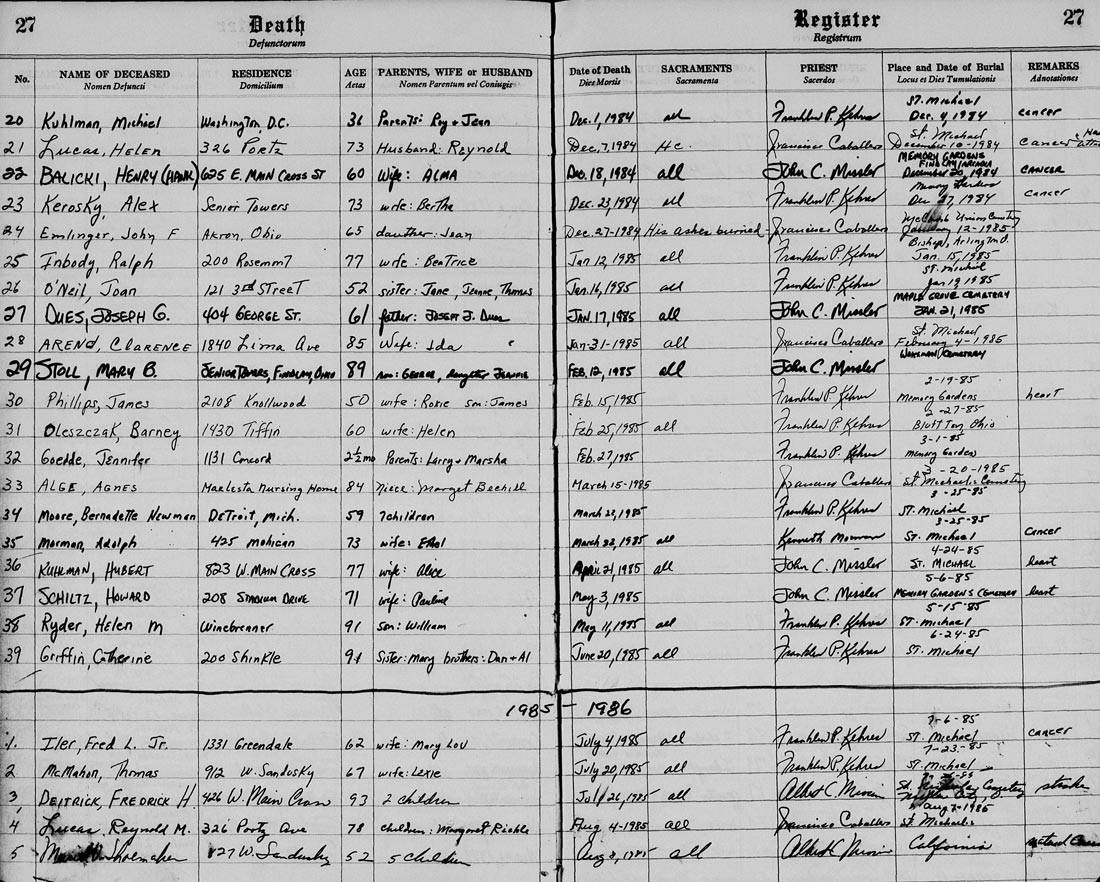 27 Death Register 27
Defunctorum Registrum
No. NAME OF DECEASED RESIDENCE AGE PARENTS, WIFE or HUSBAND Date of Death SACRAMENTS PRIEST Place and Date of Burial REMARKS
Nomen Defuncti Domicilium Aetas Nomen Parentum vel Coniugis Dies Mortis Sacramenta Sacerdos Locus et Dies Tumulationis Adnotationes
St. Michael
20 Kuhlman, Michael Washington, D.C. 36 Parents: Roy + Jean Dec. 1, 1984 all Franklin P. Kehres Dec. 4, 1984 cancer
St. Michael
21 Lucas, Helen 326 Portz 73 Husband: Reynold Dec. 7, 1984 H.C. Francisco Caballero December 10-1984 cancer +
MEMORY GARDENS
FINDLAY
22 BALICKI, HENRY (HANK) 625 E. MAIN CROSS ST 60 Wife: ALMA Dec. 18, 1984 all John C. Missler December 20, 1984 CANCER
Memory Gardens
23 Kerosky, Alex Senior Towers 73 wife: Bertha Dec. 23, 1984 all Franklin P. Kehres Dec 27, 1984 cancer
McComb Union Cemetery
24 Emlinger, John F Akron, Ohio 65 dauther: Jean Dec. 27-1984 His ashes burried - Francisco Caballero January 12-1985
Bishop, Arlington O.
25 Inbody, Ralph 200 Rosemont 77 wife: Beatrice Jan 12, 1985 all Franklin P. Kehres Jan. 15, 1985
St. Michael
26 O'Neil, Joan 121 3rd Street 52 sister: Jane, Jeanne, Thomas Jan. 16, 1985 all Franklin P. Kehres Jan 19 1985
MAPLE GROVE CEMETERY
27 DUES, JOSEPH G. 404 GEORGE ST. 61 father: JOSEPH J. Dues JAN. 17, 1985 all John C. Missler JAN. 21, 1985
St. Michael
28 AREND, CLARENCE 1840 Lima Ave 85 Wife: Ida Jan-31-1985 all Francisco Caballero February 4-1985
29 STOLL, MARY B. SENIOR TOWERS, FINDLAY, OHIO 89 son: GEORGE, daughter JEANNIE FEB. 12, 1985 all John C. Missler CEMETERY
2-19-85
30 Phillips, James 2108 Knollwood 50 wife: Roxie son: James Feb. 15, 1985 Franklin P. Kehres Memory Gardens heart
2-27-85
31 Oleszczak, Barney 1430 Tiffin 60 wife: Helen Feb 25, 1985 all Franklin P. Kehres Bluffton, Ohio
3-1-85
32 Goedde, Jennifer 1131 Concord 2½ mo Parents: Larry + Marsha Feb. 27, 1985 Franklin P. Kehres Memory Gardens
3-20-1985
33 ALGE, AGNES Nursing Home 84 Niece: Marget March 15-1985 Francisco Caballero St. Michael's Cemetery
3-25-85
34 Moore, Bernadette Newman Detroit, Mich. 59 7 children March 22, 1985 Franklin P. Kehres St. Michael
3-25-85
35 Morman, Adolph 425 Mohican 73 wife: Ethel March 22, 1985 all Kenneth Morman St. Michael cancer
4-24-85
36 KUHLMAN, HUBERT 823 W. MAIN CROSS 77 wife: Alice April 21, 1985 all John C. Missler ST. MICHAEL heart
5-6-85
37 SCHILTZ, HOWARD 208 STADIUM DRIVE 71 wife: Pauline May 3, 1985 John C. Missler MEMORY GARDENS CEMETERY heart
5-15-85
38 Ryder, Helen M Winebrenner 91 Son: William May 11, 1985 all Franklin P. Kehres St. Michael
6-24-85
39 Griffin, Catherine 200 Shinkle 91 Sister: Mary brothers: Dan + Al June 20, 1985 all Franklin P. Kehres St. Michael
1985 - 1986
7-6-85
1. Iler, Fred L. Jr. 1331 Greendale 62 wife: Mary Lou July 4, 1985 all Franklin P. Kehres St. Michael cancer
7-23-85
2 McMahon, Thomas 912 W. Sandusky 67 wife: Lexie July 20, 1985 all Franklin P. Kehres St. Michael
3 DEITRICK, FREDRICK H. 426 W. Main Cross 93 2 children July 26, 1985 all Albert C. Cemetery stroke
Aug 7-1985
4 Lucas, Reynold M. 326 Portz Ave 78 children: Margaret Aug 4-1985 all Francisco Caballero St. Michael's
5 Shoemaker 127 W. Sandusky 52 5 children Aug 8, 1985 all Albert C. California natural